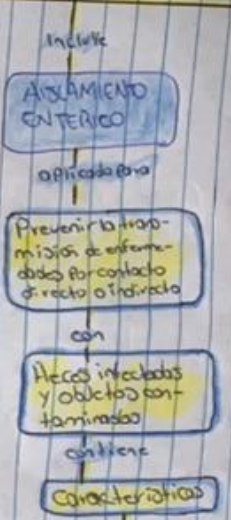 incluye
AISLAMIENTO
ENTERICO
aplicado para
Prevenir la trans-
misión de enferme-
dades por contacto
directo o indirecto
con
Heces infectadas
y objetos con-
taminados
contiene
características